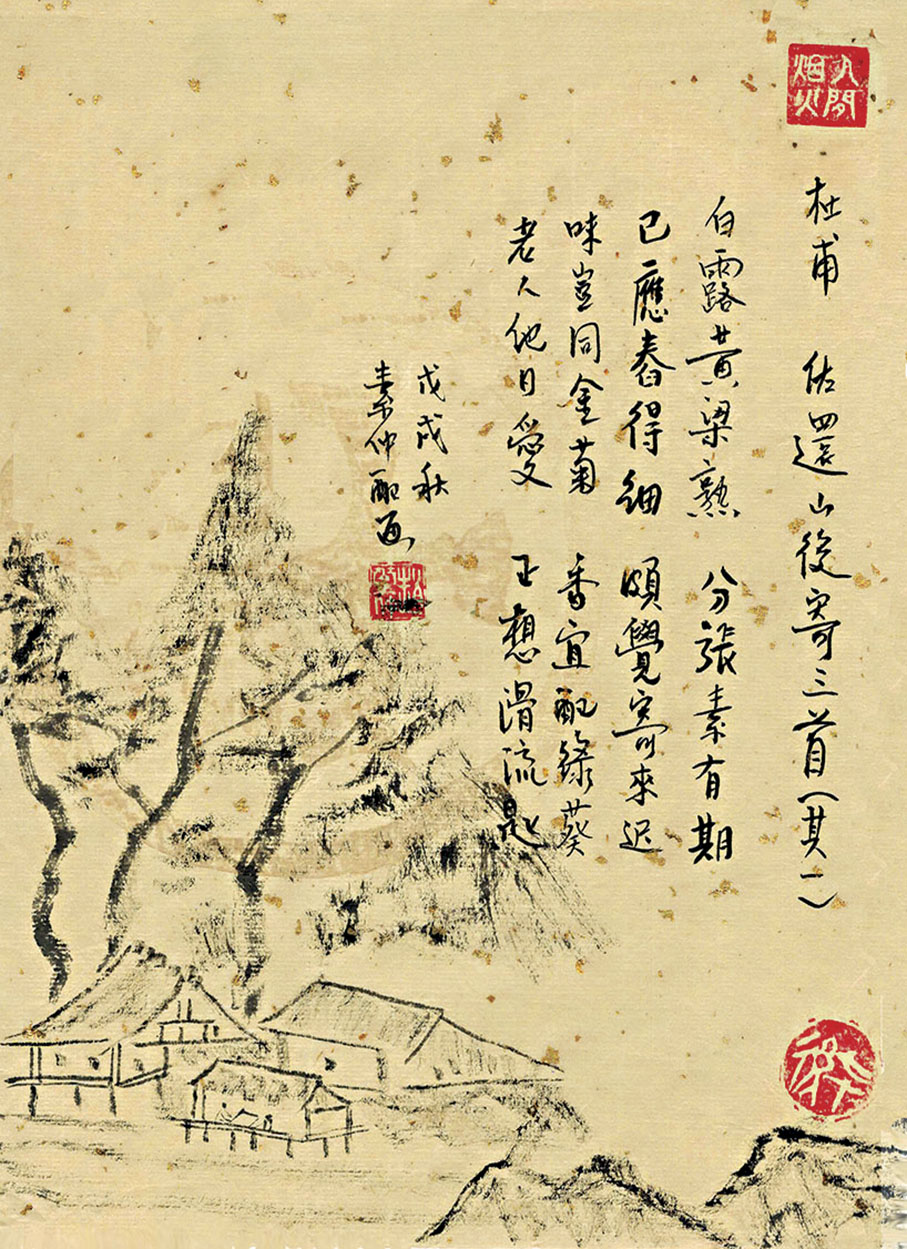 人間烟火
杜甫 佐還山後寄三首(其一)
白露黄粱熟 分張素有期
已應舂得細 頗覺寄來迟
味豈同金菊 香宜配綠葵
老人他日愛 正想滑流匙
戊戌秋
素仲配画